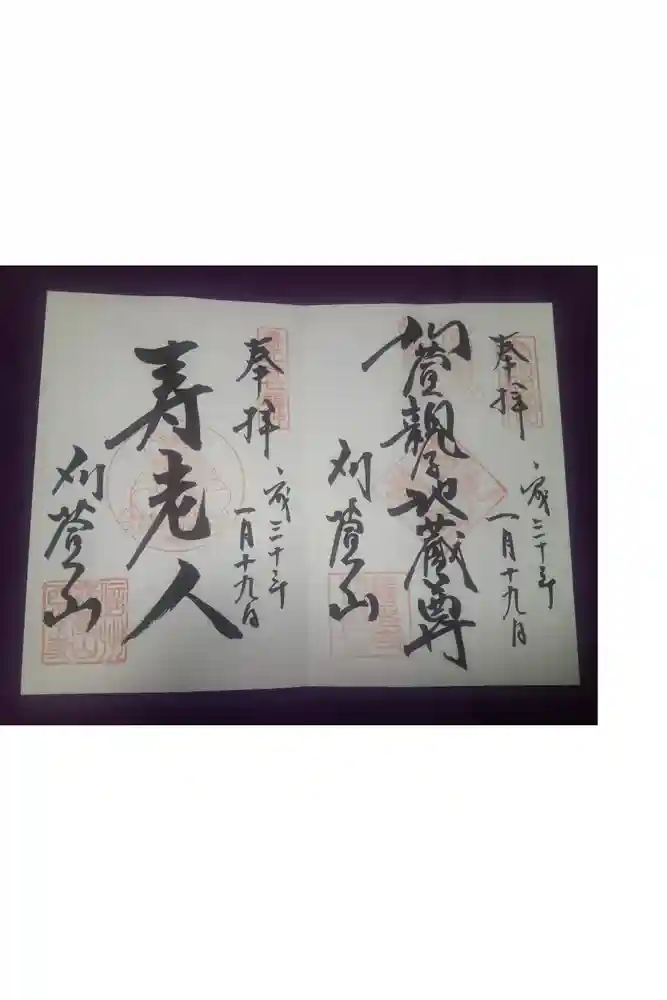 奉拝
平成三十年
一月十九日
刈萱親子地蔵尊
刈萱山
奉拝
平成三十年
一月十九日
寿老人
刈萱山